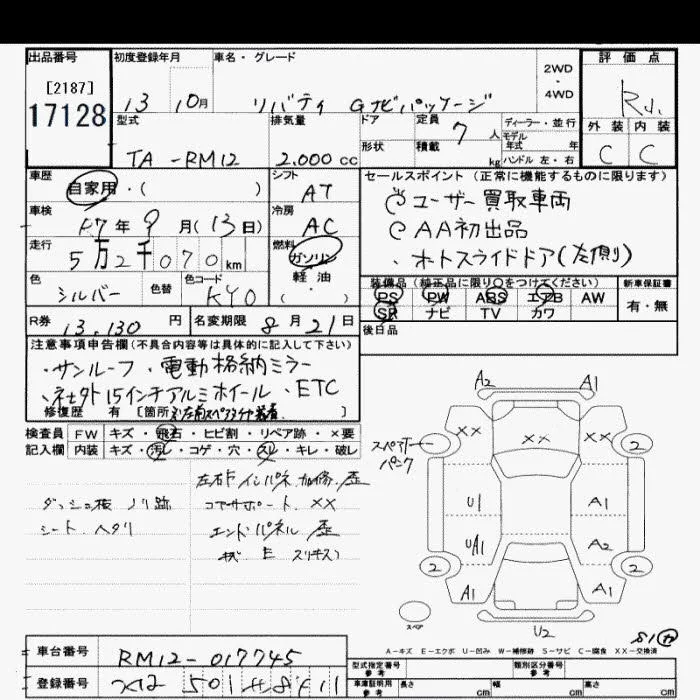 出品番号
[2187]
17128
初度登録年月
13 10月
車名・グレード
リバティ Gナビパッケージ
2WD
・
4WD
評価点
R1.
外装 内装
C C
型式
TA-RM12
排気量
2,000cc
ドア
形状
定員
7人
積載
kg
ディーラー・並行
モデル
年式 年
ハンドル 左・右
車歴
自家用・( )
シフト
AT
セールスポイント(正常に機能するものに限ります)
ユーザー買取車両
AA初出品
・オートスライドドア(左側)
車検
R7年9月(13日)
冷房
AC
走行
5万2千070km
燃料
ガソリン
軽油
・
( )
色
シルバー
色替
色コード
KY0
装備品(純正品に限り○をつけてください)
PS PW ABS エアB AW
SR ナビ TV カワ
新車保証書
有・無
R券 13,130円
名変期限 8月21日
後日品
注意事項申告欄(不具合内容等は具体的に記入して下さい)
・サンルーフ ・電動格納ミラー
・社外15インチアルミホイール ・ETC
修復歴 有 [箇所 ]
検査員 FW キズ・飛石・ヒビ割・リペア跡・×要
記入欄 内装 キズ・汚レ・コゲ・穴・スレ・キレ・破レ
ダッシュ板 ノリ跡
シート ヘタリ
コアサポート ××
エンドパネル 歪
スペアタイヤ
パンク
A2 A1
×× ×× ××
2 2
U1 A1
UA1 A2
2 2
A1 A1
スペア
U2
A-キズ E-エクボ U-凹み W-補修跡 S-サビ C-腐食 XX-交換済
車台番号
RM12-017745
登録番号
501
型式指定番号
参考
類別区分番号
参考
車庫証明用
参考
長さ cm
幅 cm
高さ cm